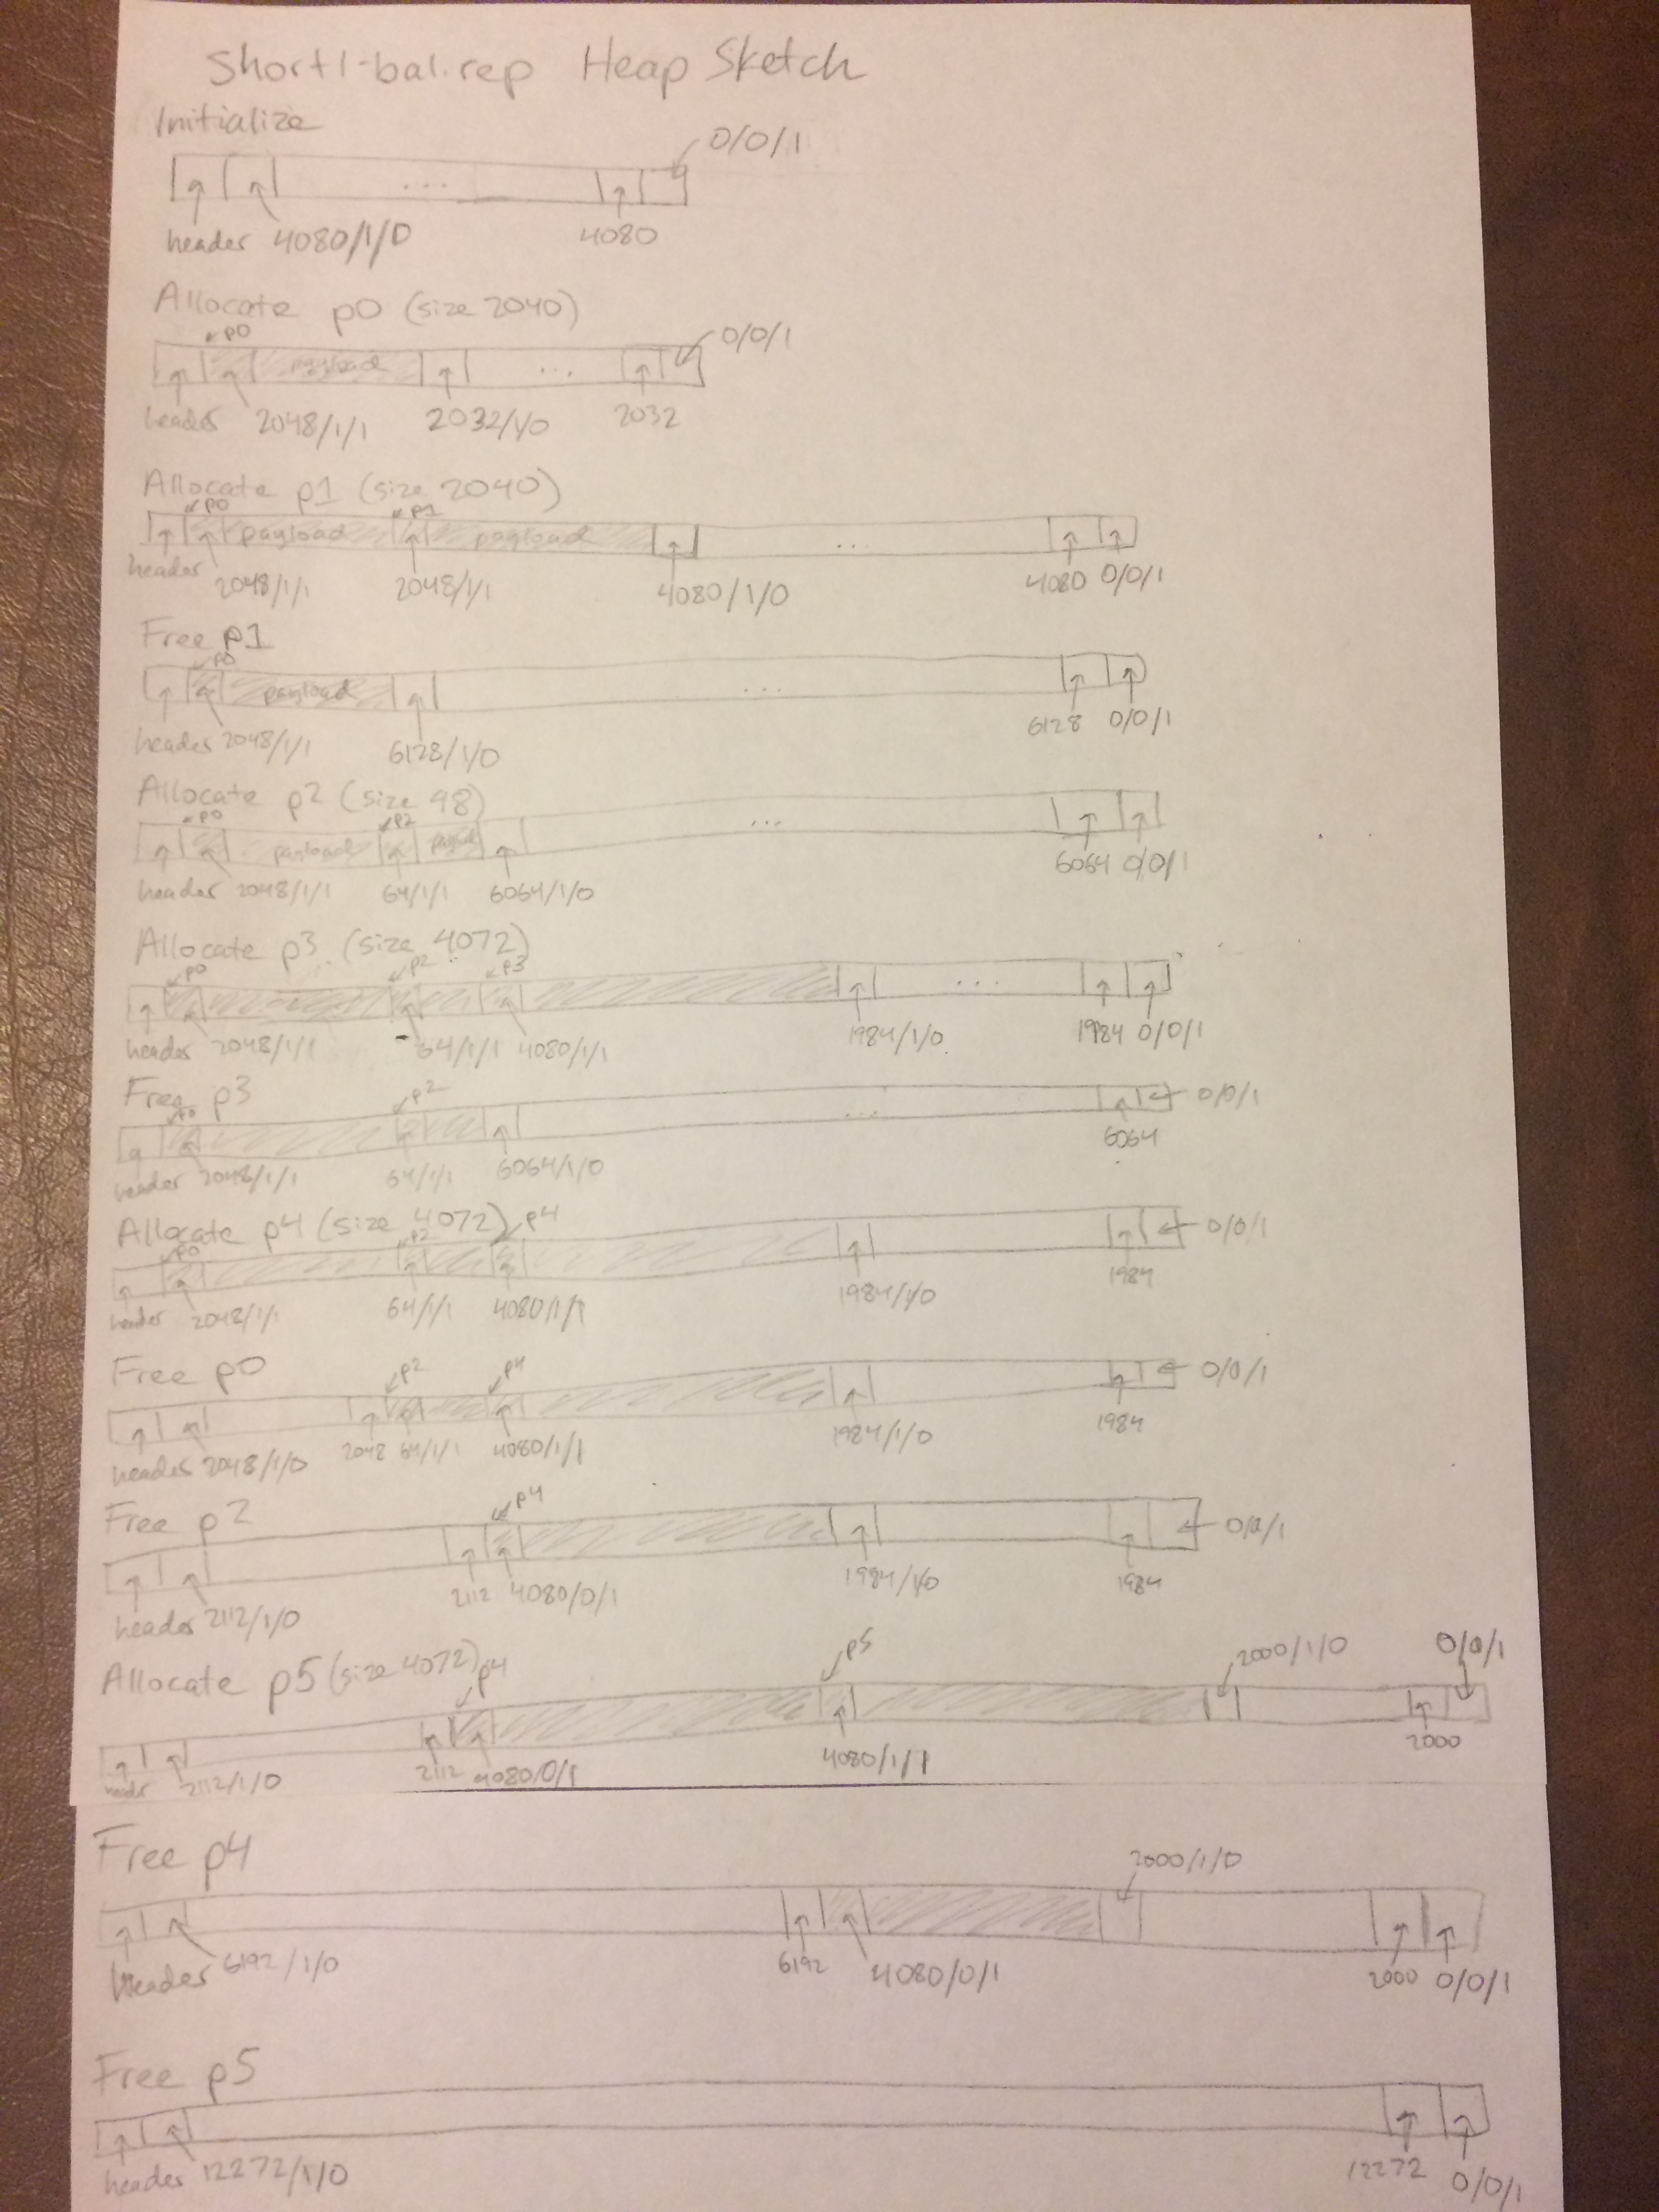 Short1-bal.rep Heap Sketch
Initialize
0/0/1
...
header 4080/1/0 4080
Allocate p0 (size 2040)
p0 0/0/1
payload ...
header 2048/1/1 2032/1/0 2032
Allocate p1 (size 2040)
p0 p1
payload payload ...
header 2048/1/1 2048/1/1 4080/1/0 4080 0/0/1
Free p1
p0
payload ...
header 2048/1/1 6128/1/0 6128 0/0/1
Allocate p2 (size 48)
p0 p2 ...
payload payload
header 2048/1/1 64/1/1 6064/1/0 6064 0/0/1
Allocate p3 (size 4072)
p0 p2 p3
...
header 2048/1/1 64/1/1 4080/1/1 1984/1/0 1984 0/0/1
Free p3
p0 p2 0/0/1
...
header 2048/1/1 64/1/1 6064/1/0 6064
Allocate p4 (size 4072) p4
p0 p2 0/0/1
header 2048/1/1 64/1/1 4080/1/1 1984/1/0 1984
Free p0
p2 p4 0/0/1
header 2048/1/0 2048 64/1/1 4080/1/1 1984/1/0 1984
Free p2
p4 0/0/1
header 2112/1/0 2112 4080/0/1 1984/1/0 1984
Allocate p5 (size 4072) p4 p5 2000/1/0 0/0/1
header 2112/1/0 2112 4080/0/1 4080/1/1 2000
Free p4
2000/1/0
header 6192/1/0 6192 4080/0/1 2000 0/0/1
Free p5
header 12272/1/0 12272 0/0/1